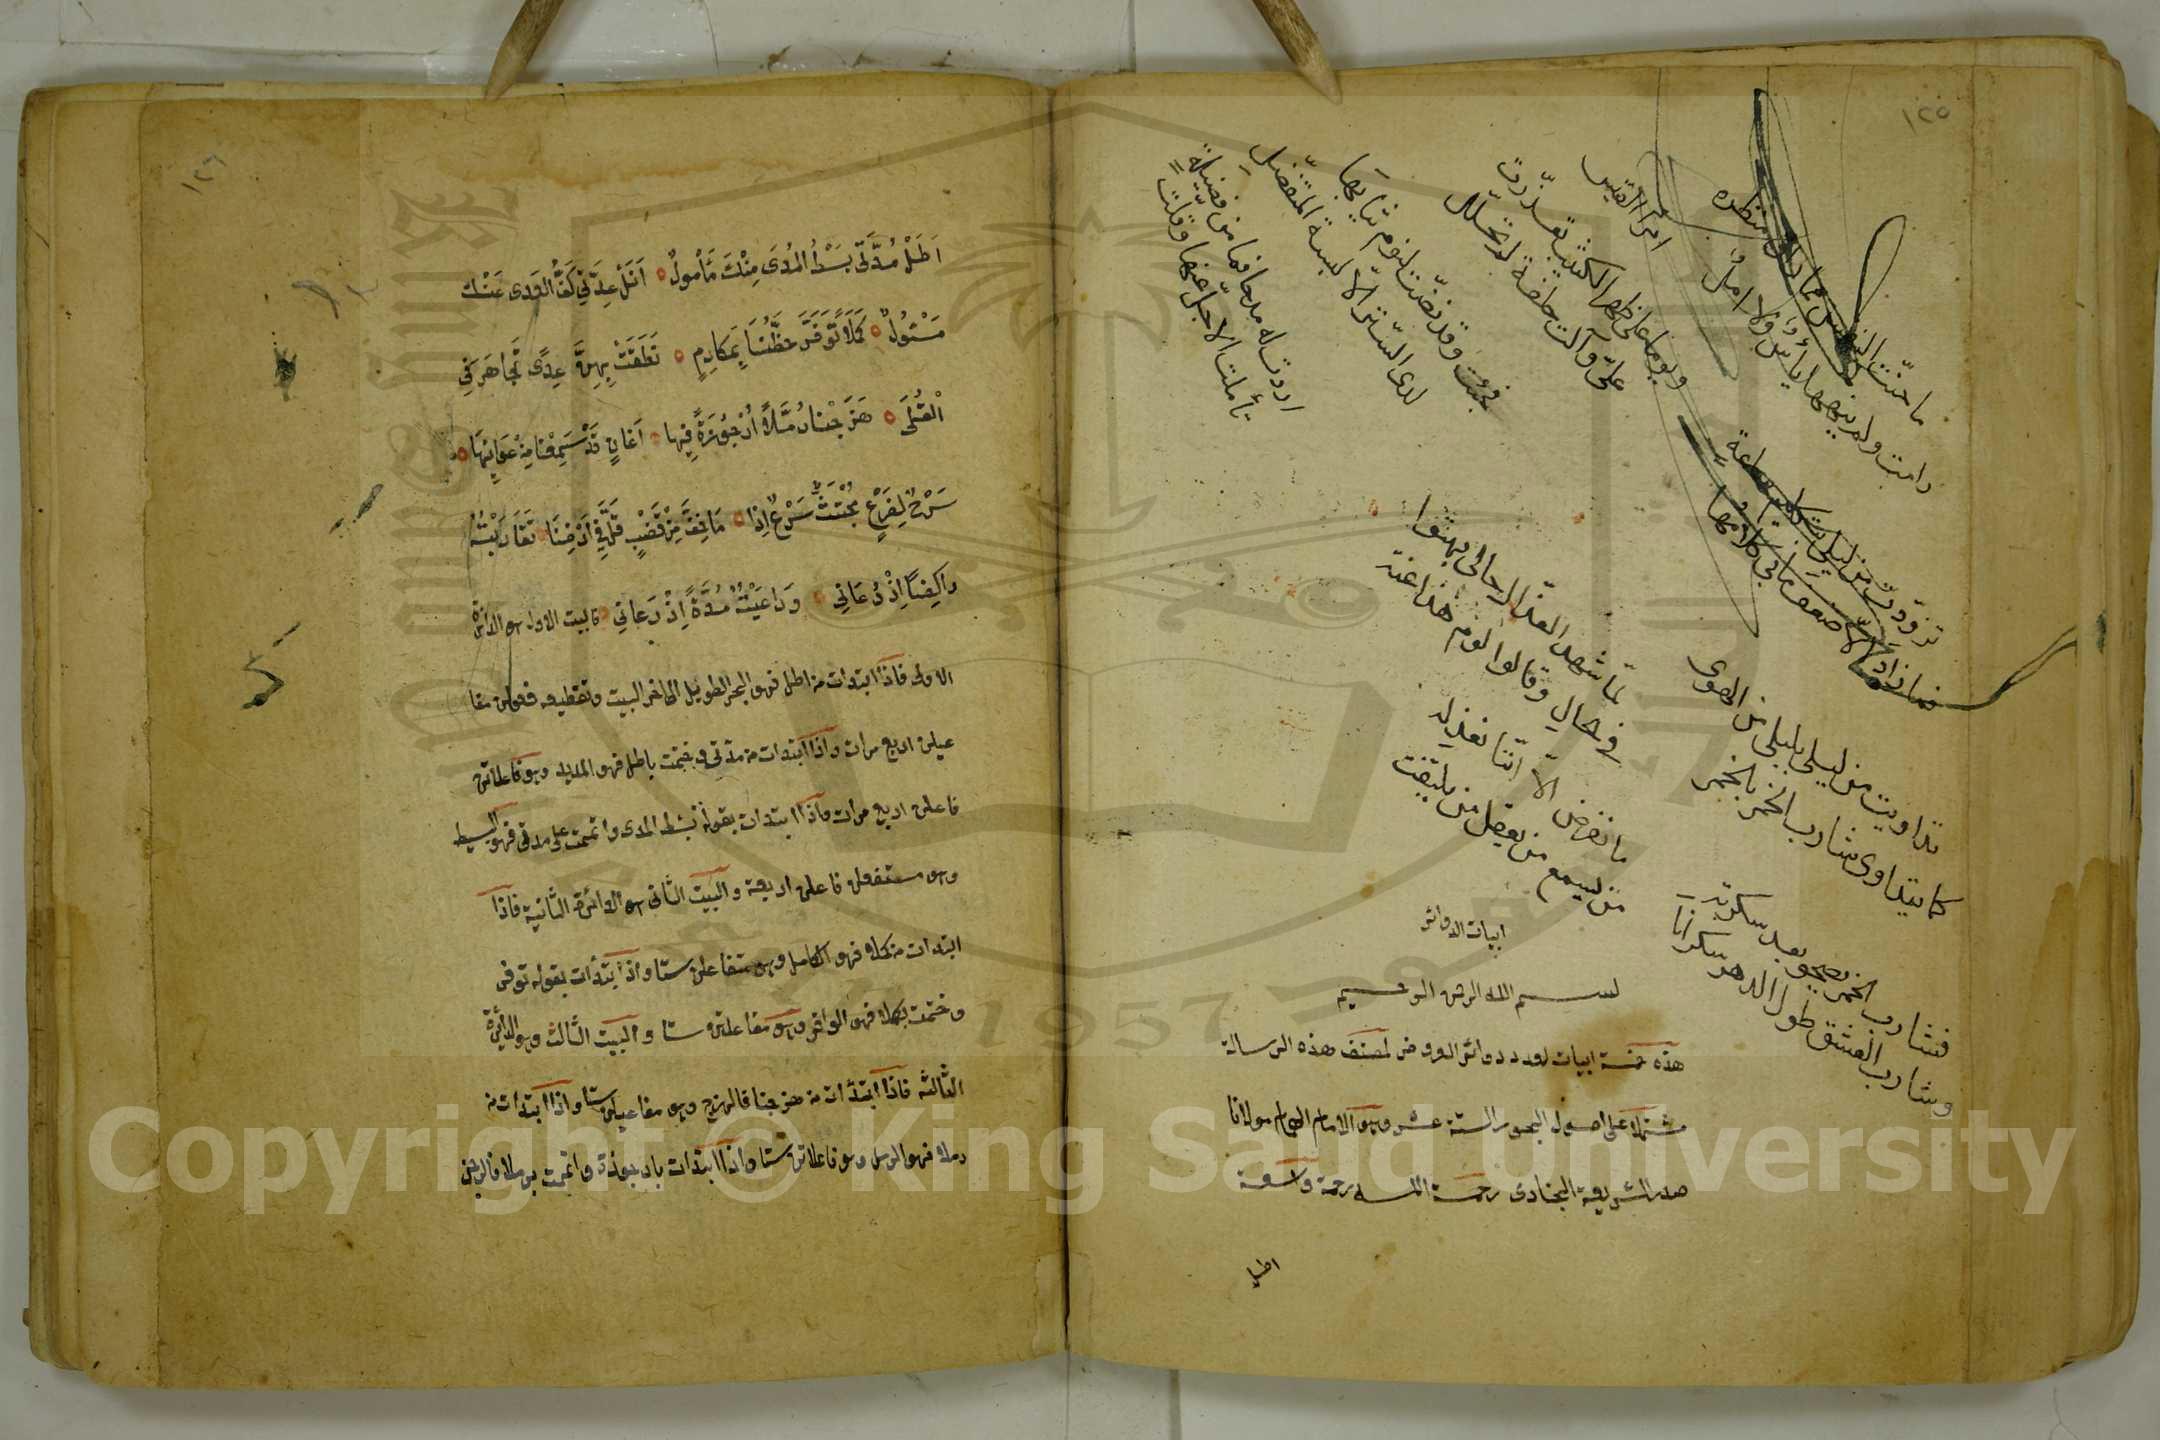 ١٢٥
امرأ القيس
ويوما على ظهر الكثيب تعذرت
علي وآلت حلفة لم تحلل
فجئت وقد نضت لنوم ثيابها
لدى الستر الا لبسة المتفضل
اردت له مدحا فما من فضيلة
تأملت الا جل عنها وقلت
تزودت من ليلى بتكليم ساعة
فما زاد الا ضعف ما بي كلامها
تداويت من ليلى بليلى من الهوى
كما يتداوى شارب الخمر بالخمر
فشارب الخمر يصحو بعد سكرته
وشارب العشق طول الدهر سكرانا
لما شهد العذال حالي بهتوا
في حالي وقالوا لوم هذا عنت
ما نعرض الا اننا نعذله
من يسمع من يعقل من يلتفت
ابيات الدوائر
بسم الله الرحمن الرحيم
هذه خمسة ابيات لعدد دوائر العروض لمصنف هذه الرسالة
مشتملة على اصول البحور الستة عشر وهو الامام الهمام مولانا
صدر الشريعة البخارى رحمة الله رحمة واسعة
اطل
١٢٦
اَطَلْ مُدَّتى بَسْطُ المُدَى مِنْكَ مَأمولٌ اَنَلْ عِدَتِي كَفُّ الوَدى عَنْكَ
مَسْئولٌ كَمَلاً تَوَفَّرَ حَظُّنَا بِمَكارِمٍ نَطَقَتْ بِهِنَّ عِدًى تَجَاهَرَ فِي
الْقُلَى هَزَجْنا رُمَّلاً اُرْجوزَةً فيها اَغانٍ قَدْ سَمِعْنا مِنْ غوَانِيهَا
سَرْحٌ لِفَرْعٍ مُجْتَثُّ سَرْعٌ اِذا مَا خِفَّ مِنْ قَضْبٍ قَلَّ فِي اَرْضِنَا تَقَارَبْتُهُ
راكِضًا اِذْ دُعَاني وَراعَيْتُهُ مُدَّةً اِذْ رَعاني فالبيت الاول هو الدائرة
الاولى فاذا ابتدات من اطل فهو البحر الطويل الى اخر البيت وتقطيعه فعولن مفا
عيلن اربع مرات واذا ابتدات من مدتى وختمت باطل فهو المديد وهو فاعلاتن
فاعلن اربع مرات واذا ابتدات بقوله بسط المدى واتممت على مدتى فهو البسيط
وهو مستفعلن فاعلن اربعة والبيت الثانى هو الدائرة الثانية فاذا
ابتدات من كملا فهو الكامل وهو متفاعلن ستا واذا ابتدأت بقوله توفر
وختمت بكملا فهو الوافر وهو مفاعلتن ستا والبيت الثالث وهو الدائرة
الثالثه فاذا ابتدأت من هزجنا فالهزج وهو مفاعيلن ستا واذا ابتدات من
رملا فهو الرمل وهو فاعلاتن ستا واذا ابتدات بارجوزة واتممت برملا فالرجز
Copyright © King Saud University
1957